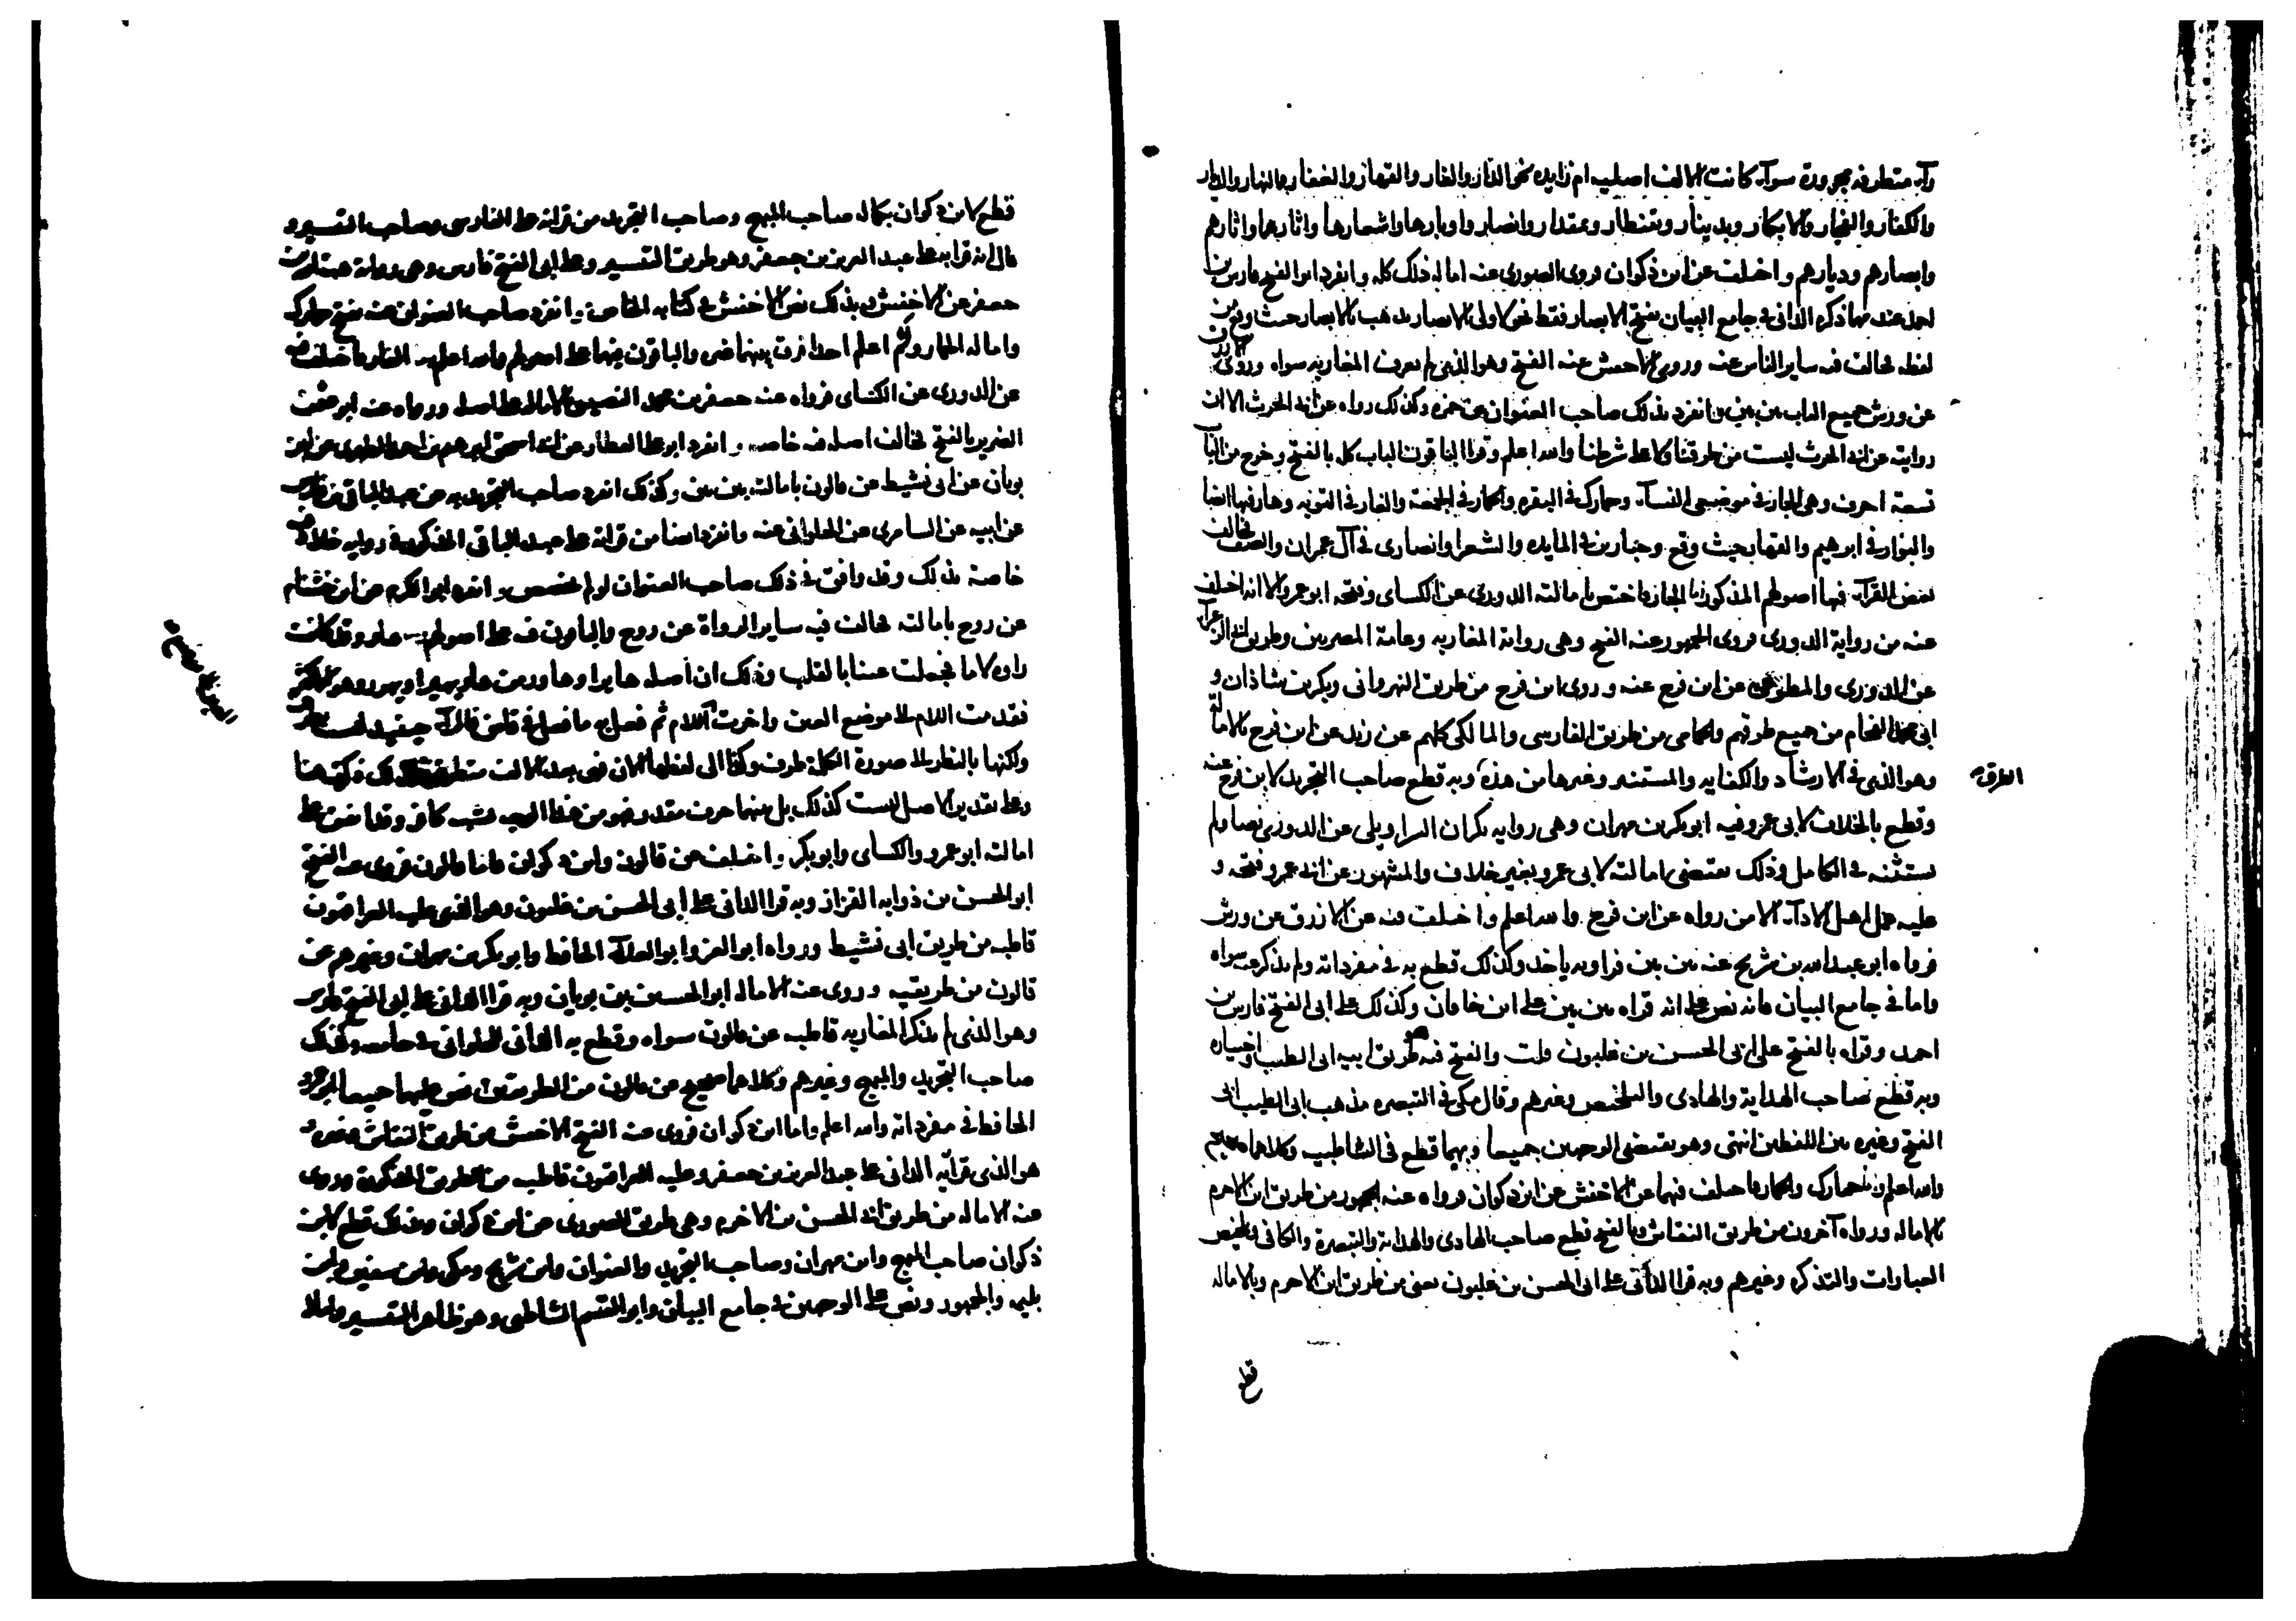 رآء متطرفة مجرورة سوآء كانت الالف اصلية ام زايدة نحو الدار والغار والقهار والغفار والنهار والديار
والكفار والفجار والابكار وبدينار وبقنطار وبمقدار وانصار واوبارها واشعارها واثارها واثارهم
وابصارهم وديارهم واختلف عن ابن ذكوان فروى الصورى عنه امالة ذلك كله وانفرد ابو الفتح فارس بن
احمد عنه فيما ذكره الدانى فى جامع البيان بفتح الابصار فقط نحو لاولى الابصار يذهب بالابصار حيث وقع من
لفظه فخالف فيه ساير الناس عنه وروى الاخفش عنه الفتح وهو الذى لم يعرف المغاربه سواه وروى الازرق
عن ورش جميع الباب بين بين وانفرد بذلك صاحب العنوان عن حمزه وكذلك رواه عن ابى الحرث الا ان
روايته عن ابى الحرث ليست من طرقنا ولا على شرطنا والله اعلم وقرا الباقون الباب كله بالفتح وخرج من الباب
تسعة احرف وهى الجار فى موضعى النسآء وحمارك فى البقره والحمار فى الجمعة والغار فى التوبه وهار فيها ايضا
والبوار فى ابرهيم والقهار حيث وقع وجبارين فى المايده والشعرا وانصارى فى آل عمران والصف فخالف
بعض القرآء فيها اصولهم المذكورة اما الجار فاختص بامالته الدورى عن الكساى وفتحه ابو عمرو الا انه اختلف
عنه من رواية الدورى فروى الجمهور عنه الفتح وهى رواية المغاربه وعامة المصريين وطريق ابى الزعرآء
عن الدورى والمطوعى عن ابن فرح عنه وروى ابن فرح من طريق النهروانى وبكر بن شاذان و
ابى محمد الفحام من جميع طرقهم والحمامى من طريق الفارسى والمالكى كلهم عن زيد عن ابن فرح بالامالة
وهو الذى فى الارشاد والكفايه والمستنير وغيرها من هذه وبه قطع صاحب التجريد لابن فرح عنه
الطرق
وقطع بالخلاف لابى عمرو فيه ابو بكر بن مهران وهى رواية بكران السراويلى عن الدورى نصا ولم
يستثنه فى الكامل وذلك يقتضى امالته لابى عمرو بغير خلاف والمشهور عن ابى عمرو فتحه و
عليه عمل اهل الادآء الا من رواه عن ابن فرح والله اعلم واختلف فيه عن الازرق عن ورش
فرواه ابو عبد الله بن شريح عنه بين بين فرا وبه ياخذ وكذلك قطع به فى مفرداته ولم يذكر عنه سواه
واما فى جامع البيان فانه نص على انه قراه بين بين على ابن خاقان وكذلك على ابى الفتح فارس بن
احمد وقراه بالفتح على ابى الحسن بن غلبون قلت والفتح فيه هو طريق ابيه ابى الطيب واختياره
وبه قطع صاحب الهداية والهادى والتلخيص وغيرهم وقال مكى فى التبصره مذهب ابى الطيب
الفتح وغيره بين اللفظين انتهى وهو يقتضى الوجهين جميعا وبهما قطع فى الشاطبيه وكلاهما صحيح
والله اعلم واما حمارك والحمار فاختلف فيهما عن الاخفش عن ابن ذكوان فرواه عنه الجمهور من طريق ابن الاخرم
بالاماله ورواه آخرون من طريق النقاش وبالفتح قطع صاحب الهادى والهداية والتبصرة والكافى وتلخيص
العبارات والتذكره وغيرهم وبه قرا الدانى على ابى الحسن بن غلبون يعنى من طريق ابن الاخرم وبالاماله
قطع
قطع لابن ذكوان بكماله صاحب المبهج وصاحب التجريد من قراته على الفارسى وصاحب التيسير و
قال انه قرا به على عبد العزيز بن جعفر وهو طريق التيسير وعلى ابى الفتح فارس وهى رواية هبة الله بن
جعفر عن الاخفش وبذلك نص الاخفش فى كتابه الخاص وانفرد صاحب العنوان عنه بفتح حمارك
وامالة الحمار ولم اعلم احدا فرق بينهما غيره والباقون فيهما على اصولهم والله اعلم واما الغار فاختلف فيه
عن الدورى عن الكساى فرواه عنه جعفر بن محمد النصيبى بالاماله على اصله ورواه عنه ابو عثمن
الضرير بالفتح فخالف اصله فيه خاصه وانفرد ابو على العطار عن ابى اسحق ابرهيم بن احمد الطبرى عن ابن
بويان عن ابى نشيط عن قالون بامالته بين بين وكذلك انفرد صاحب التجريد به عن عبد الباقى بن فارس
عن ابيه عن السامرى عن الحلوانى عنه وانفرد ايضا من قراته على عبد الباقى المذكور فى رواية خلاد
خاصة بذلك وقد وافق فى ذلك صاحب العنوان لو لم يخصص وانفرد ابو الكرم عن ابن خشنام
عن روح بامالته فخالف فيه ساير الرواة عن روح والباقون فيه على اصولهم واما هار وقد كانت
راوه لاما فجعلت عينا بالقلب وذلك ان اصله هاير او هاور من هار يهير او يهور وهو الاكثر
فقدمت اللام الى موضع العين واخرت العين الى موضع اللام ثم فعل به ما فعل فى قاض فالرآء حينئذ ليست بطرف
ولكنها بالنظر الى صورة الكلمة طرف وكذا الى لفظها الان فهى بعد الالف متطرفة فلذلك ذكرت هنا
وعلى تقدير الاصل ليست كذلك بل بينهما حرف مقدر فهو من هذا الوجه يشبه كافر وقد اتفق على
امالته ابو عمرو والكساى وابو بكر واختلف عن قالون وابن ذكوان فاما قالون فروى عنه الفتح
ابو الحسن بن ذوابه القزاز وبه قرا الدانى على ابى الحسن بن غلبون وهو الذى عليه العراقيون
قاطبه من طريق ابى نشيط ورواه ابو العز وابو العلآء الحافظ وابو بكر بن مهران وغيرهم عن
قالون من طريقيه وروى عنه الاماله ابو الحسين بن بويان وبه قرا الدانى على ابى الفتح فارس
وهو الذى لم يذكر المغاربه قاطبه عن قالون سواه وقطع به الدانى للحلوانى فى جامعه وكذلك
صاحب التجريد والمبهج وغيرهم وكلاهما صحيح عن قالون من الطريقين نص عليهما جميعا ابو عمرو
الحافظ فى مفرداته والله اعلم واما ابن ذكوان فروى عنه الفتح الاخفش من طريق النقاش وغيره و
هو الذى قرا به الدانى على عبد العزيز بن جعفر وعليه العراقيون قاطبه من الطريق المذكورة وروى
عنه الاماله من طريق ابى الحسن بن الاخرم وهى طريق الصورى عن ابن ذكوان وبذلك قطع لابن
ذكوان صاحب المبهج وابن مهران وصاحب التجريد والعنوان وابن شريح ومكى وابن سفين وابن
بليمه والجمهور ونص على الوجهين فى جامع البيان وابو القسم الشاطبى وهو ظاهر التيسير واما